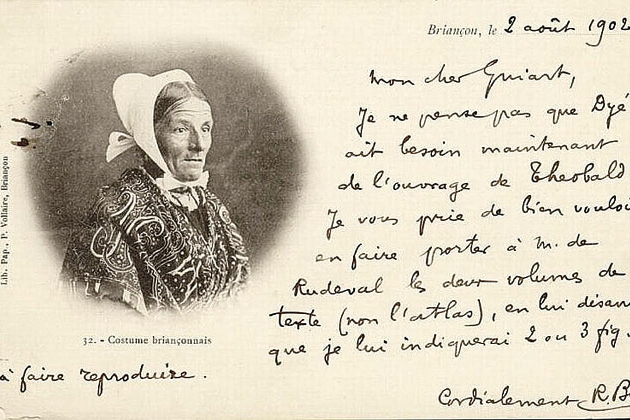 Briançon, le 2 août 1902
Mon cher Guiart,
Je ne pense pas que Dyé
ait besoin maintenant
de l'ouvrage de Theobald
Je vous prie de bien vouloi
en faire porter à M. de
Rudeval les deux volumes de
texte (non l'atlas), en lui disan
que je lui indiquerai 2 ou 3 fig.
à faire reproduire.
Cordialement R. B
32. - Costume briançonnais
Lib. Pap., P. Vollaire, Briançon